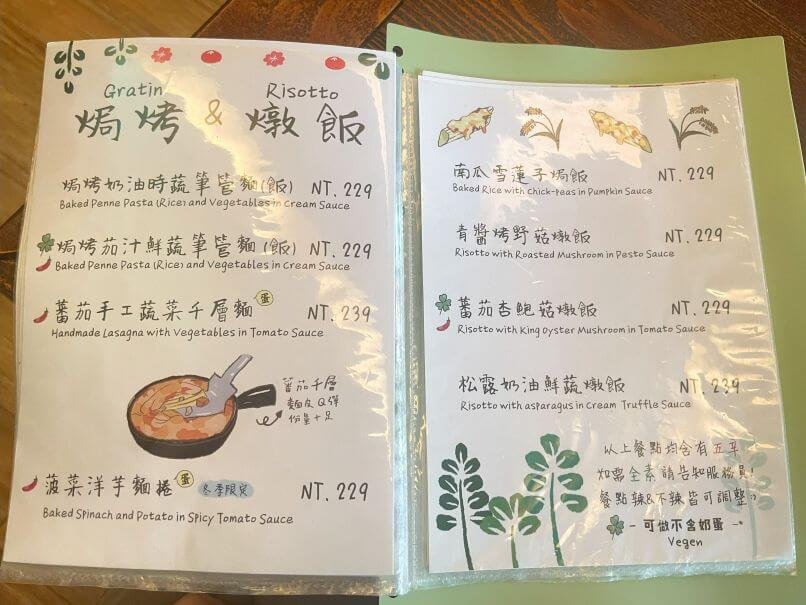 Gratin Risotto
焗烤 & 燉飯
焗烤奶油時蔬筆管麵(飯) NT. 229
Baked Penne Pasta (Rice) and Vegetables in Cream Sauce
焗烤茄汁鮮蔬筆管麵(飯) NT. 229
Baked Penne Pasta (Rice) and Vegetables in Cream Sauce
蕃茄手工蔬菜千層麵 蛋 NT. 239
Handmade Lasagna with Vegetables in Tomato Sauce
蕃茄千層
麵皮Q彈
份量十足
菠菜洋芋麵捲 蛋 冬季限定 NT. 229
Baked Spinach and Potato in Spicy Tomato Sauce
南瓜雪蓮子焗飯 NT. 229
Baked Rice with Chick-Peas in Pumpkin Sauce
青醬烤野菇燉飯 NT. 229
Risotto with Roasted Mushroom in Pesto Sauce
蕃茄杏鮑菇燉飯 NT. 229
Risotto with King Oyster Mushroom in Tomato Sauce
松露奶油鮮蔬燉飯 NT. 239
Risotto with asparagus in Cream Truffle Sauce
以上餐點均含有五辛
如需全素請告知服務員!
餐點辣&不辣皆可調整。
- 可做不含奶蛋 -
Vegen